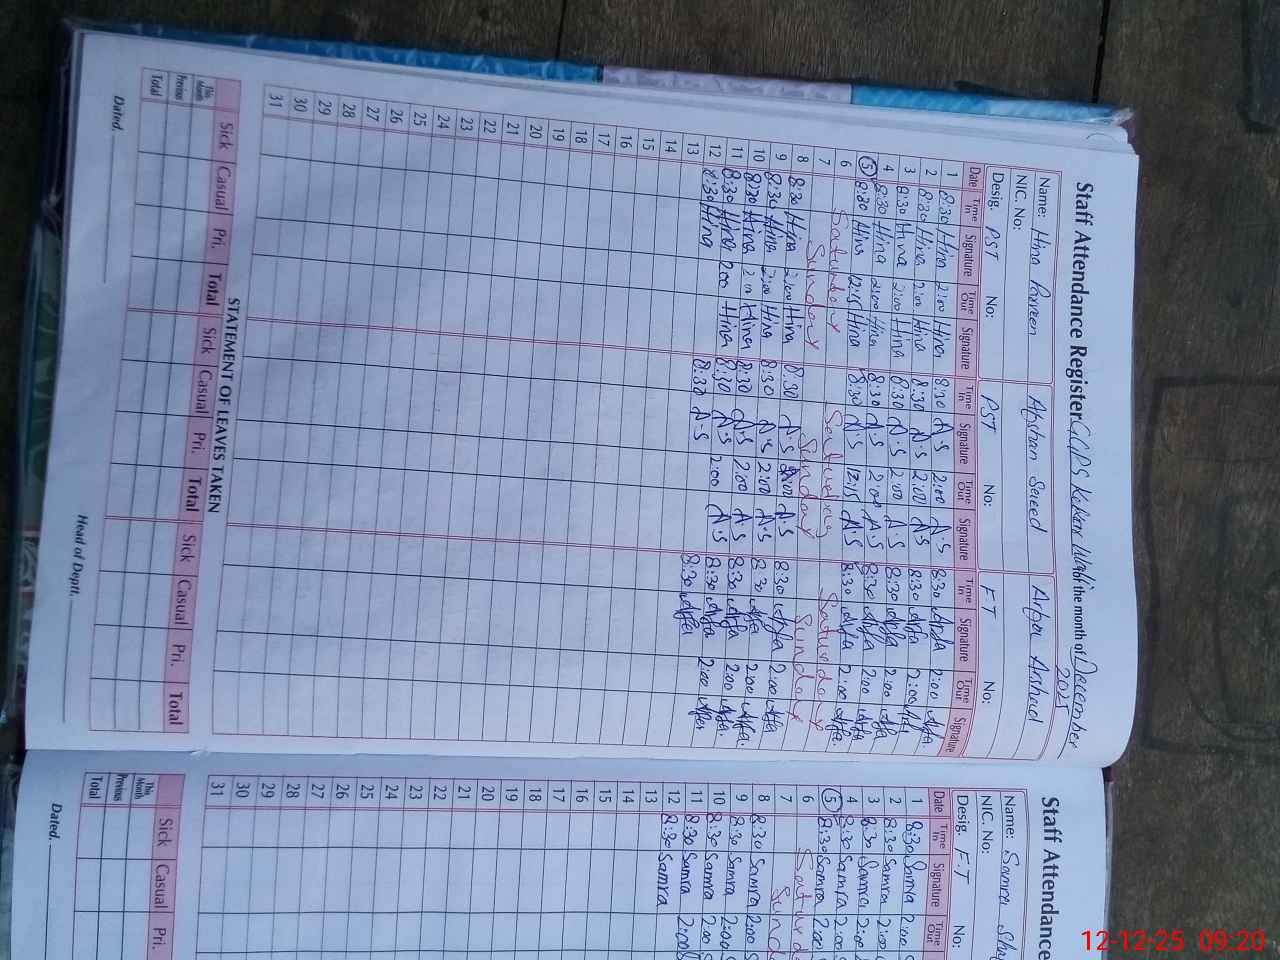 Staff Attendance Register GGPS for the month of December 2025
Name: Hina Parveen Afshan Saeed Arfa Arshad
NIC. No:
Desig. PST No: PST No: FT No:
Date Time In Signature Time Out Signature Time In Signature Time Out Signature Time In Signature Time Out Signature
1 8:30 Hina 2:00 Hina 8:30 A.S 2:00 A.S 8:30 Arfa 2:00 Arfa
2 8:30 Hina 2:00 Hina 8:30 A.S 2:00 A.S 8:30 Arfa 2:00 Arfa
3 8:30 Hina 2:00 Hina 8:30 A.S 2:00 A.S 8:30 Arfa 2:00 Arfa
4 8:30 Hina 2:00 Hina 8:30 A.S 2:00 A.S 8:30 Arfa 2:00 Arfa
5 8:30 Hina 12:15 Hina 8:30 A.S 12:15 A.S 8:30 Arfa 2:00 Arfa
6 Saturday Saturday Saturday
7 Sunday Sunday Sunday
8 8:30 Hina 2:00 Hina 8:30 A.S 2:00 A.S 8:30 Arfa 2:00 Arfa
9 8:30 Hina 2:00 Hina 8:30 A.S 2:00 A.S 8:30 Arfa 2:00 Arfa
10 8:30 Hina 2:00 Hina 8:30 A.S 2:00 A.S 8:30 Arfa 2:00 Arfa
11 8:30 Hina 2:00 Hina 8:30 A.S 2:00 A.S 8:30 Arfa 2:00 Arfa
12 8:30 Hina 8:30 A.S 8:30 Arfa
13
14
15
16
17
18
19
20
21
22
23
24
25
26
27
28
29
30
31
STATEMENT OF LEAVES TAKEN
Sick Casual Pri. Total Sick Casual Pri. Total Sick Casual Pri. Total
This Month
Previous
Total
Dated. Head of Deptt.
Staff Attendance
Name: Samra
NIC. No:
Desig. F.T No:
Date Time In Signature Time Out
1 8:30 Samra 2:00
2 8:30 Samra 2:00
3 8:30 Samra 2:00
4 8:30 Samra 2:00
5 8:30 Samra 2:00
6
7
8 8:30 Samra 2:00
9 8:30 Samra 2:00
10 8:30 Samra 2:00
11 8:30 Samra 2:00
12 8:30 Samra
13
14
15
16
17
18
19
20
21
22
23
24
25
26
27
28
29
30
31
Sick Casual Pri.
This Month
Previous
Total
Dated.
12-12-25 09:20